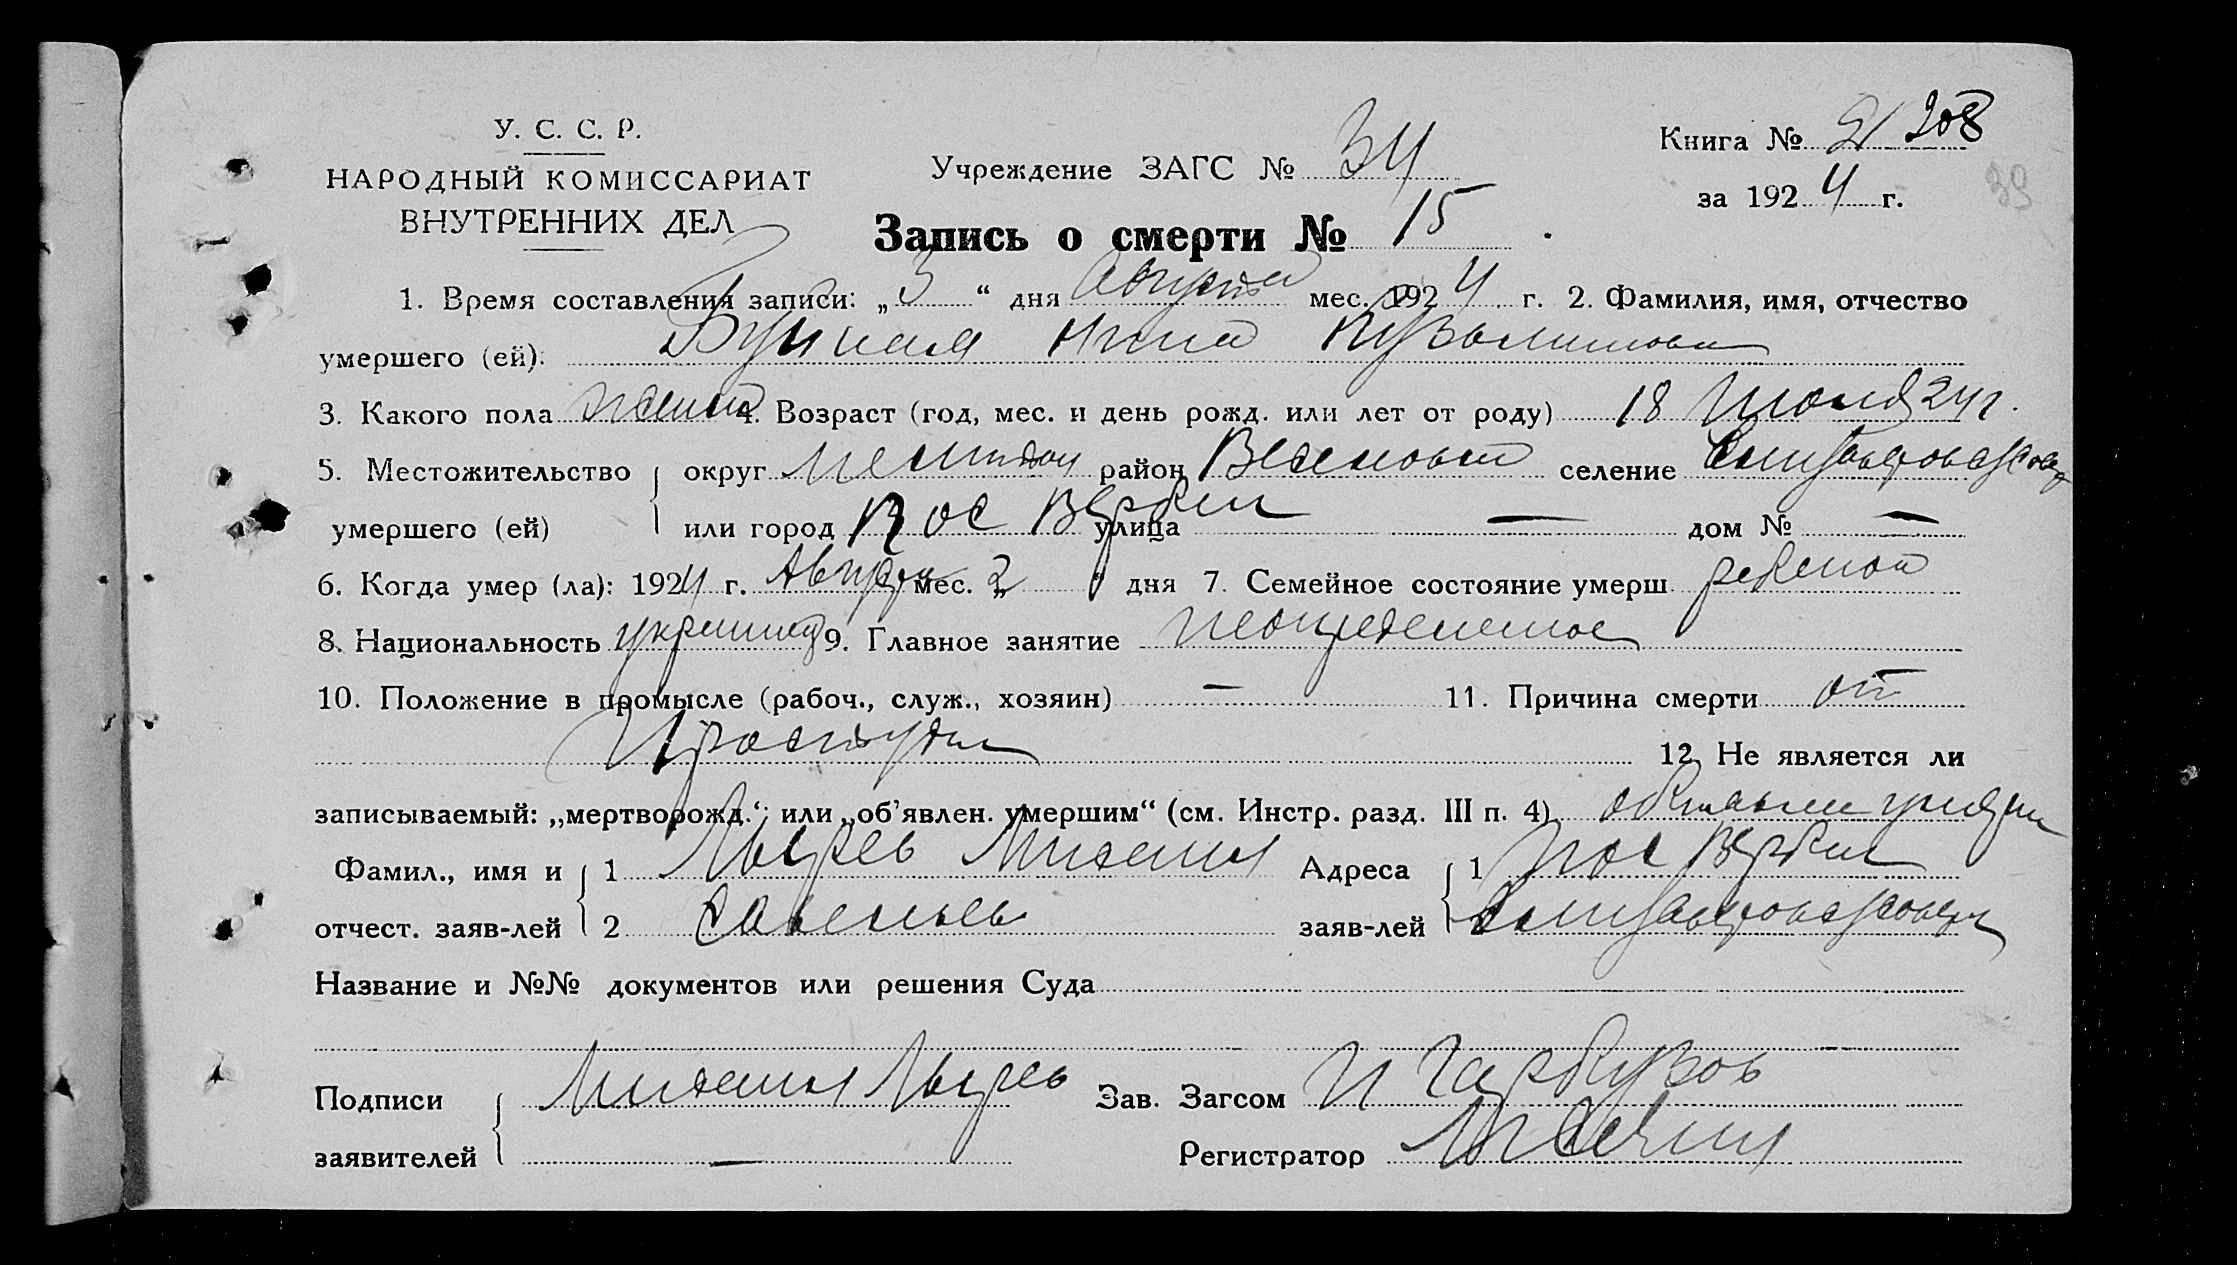 У. С. С. Р.
НАРОДНЫЙ КОМИССАРИАТ
ВНУТРЕННИХ ДЕЛ
Учреждение ЗАГС № 34
Книга № 208
за 1924 г.
Запись о смерти № 15
1. Время составления записи: „3“ дня Августа мес. 1924 г. 2. Фамилия, имя, отчество
умершего (ей): Нина Кузьминовна
3. Какого пола женс 4. Возраст (год, мес. и день рожд. или лет от роду) 18 Июля 24 г.
5. Местожительство округ район селение
умершего (ей) или город пос Вербки улица — дом № —
6. Когда умер (ла): 1924 г. Августа мес. „2“ дня 7. Семейное состояние умерш. ребенок
8. Национальность 9. Главное занятие неопределенное
10. Положение в промысле (рабоч., служ., хозяин) — 11. Причина смерти от
Простуды
12. Не является ли
записываемый: „мертворожд.“; или „об'явлен. умершим“ (см. Инстр. разд. III п. 4)
Фамил., имя и 1 Михаил Адреса 1 пос Вербки
отчест. заяв-лей 2 Савельев заяв-лей
Название и №№ документов или решения Суда
Подписи Михаил Зав. Загсом И Гарбузов
заявителей — Регистратор